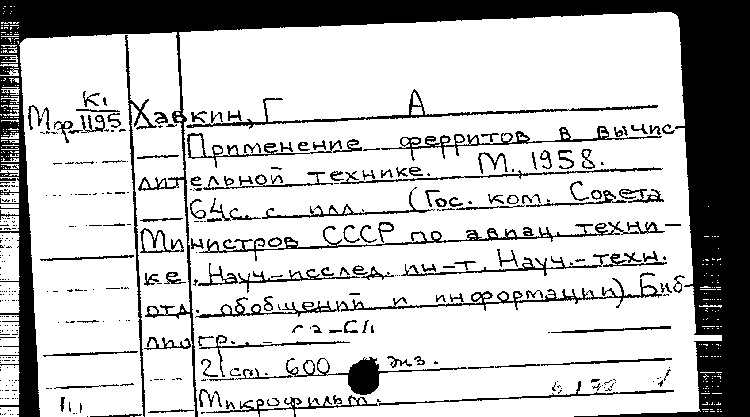 К1
Мф 1195 Хавкин, Г А
Применение ферритов в вычис-
лительной технике. М., 1958.
64с. с илл. (Гос. ком. Совета
Министров СССР по авиац. техни-
ке. Науч.-исслед. ин-т. Науч.-техн.
отд. обобщений и информации) Биб-
лиогр.:
21 cm. 600 экз.
Микрофильм.